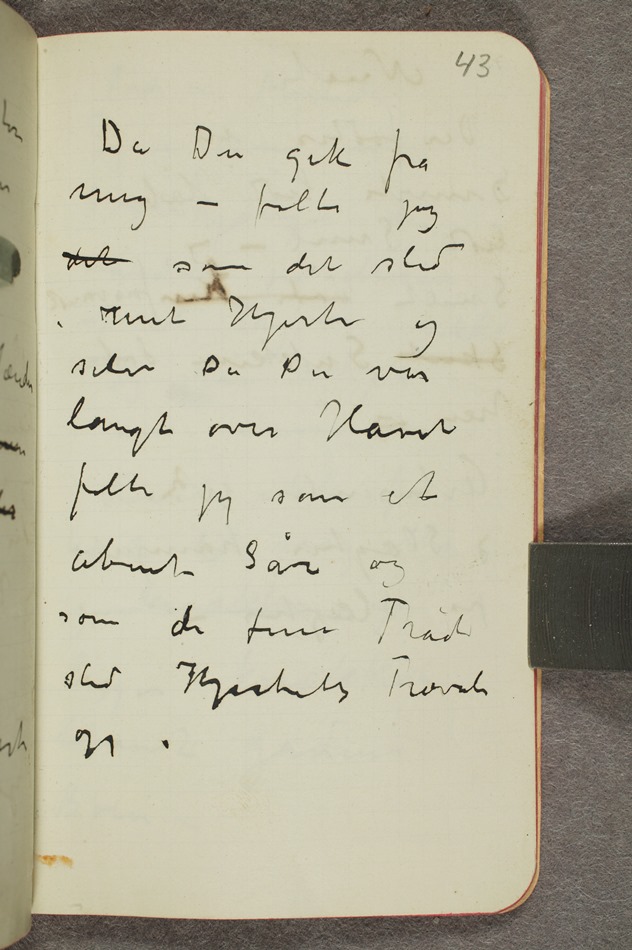 43
Da Du gik fra
mig – følte jeg
det som det sled
i mit Hjerte og
selv Da Du var
langt over Havet
følte jeg som et
åbent Sår og
som de fine Tråde
sled Hjertets Trævle
op.